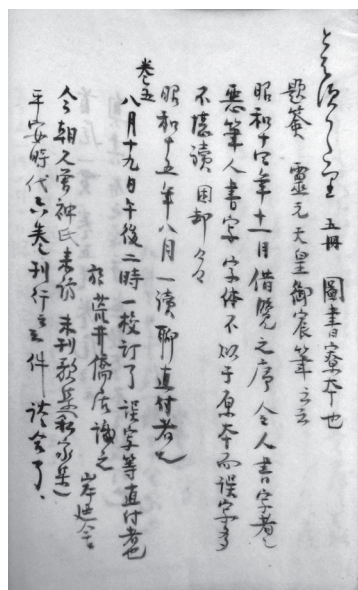 とはずがたり 五冊 圖書寮本也
題簽 靈元天皇御宸筆云云
昭和十四年十一月借覧之序令人書写者也
悪筆人書字字体不似于原本而誤字多
不穏読 困却々々
昭和十五年八月一讀聊直付者也
巻五
八月十九日午後二時一校訂了 誤字等直付者也
於荒井僑居識之
岸廼舎
今朝久曽神氏来訪 未刊歌集私家集
平安時代六巻刊行之件 談合了